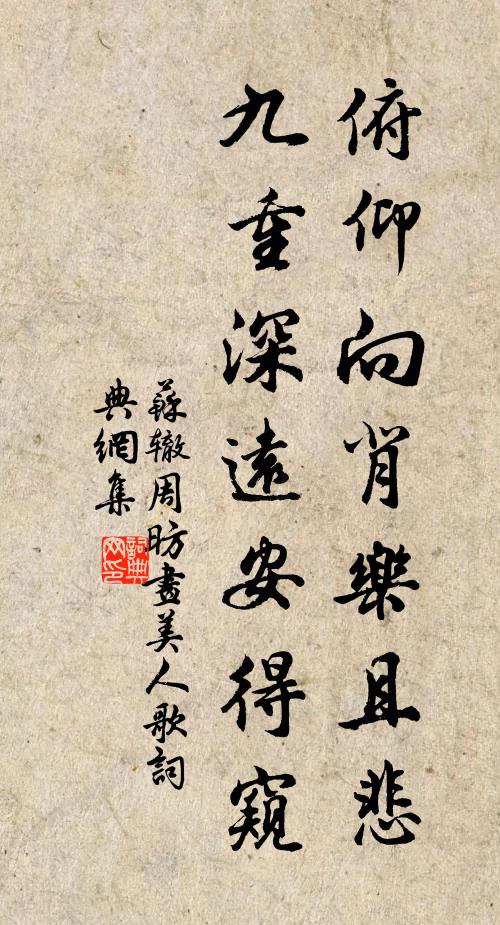 俯仰向背樂且悲
九重深遠安得窺
蘇辙周昉畫美人歌詞
典網集
詞典
网印